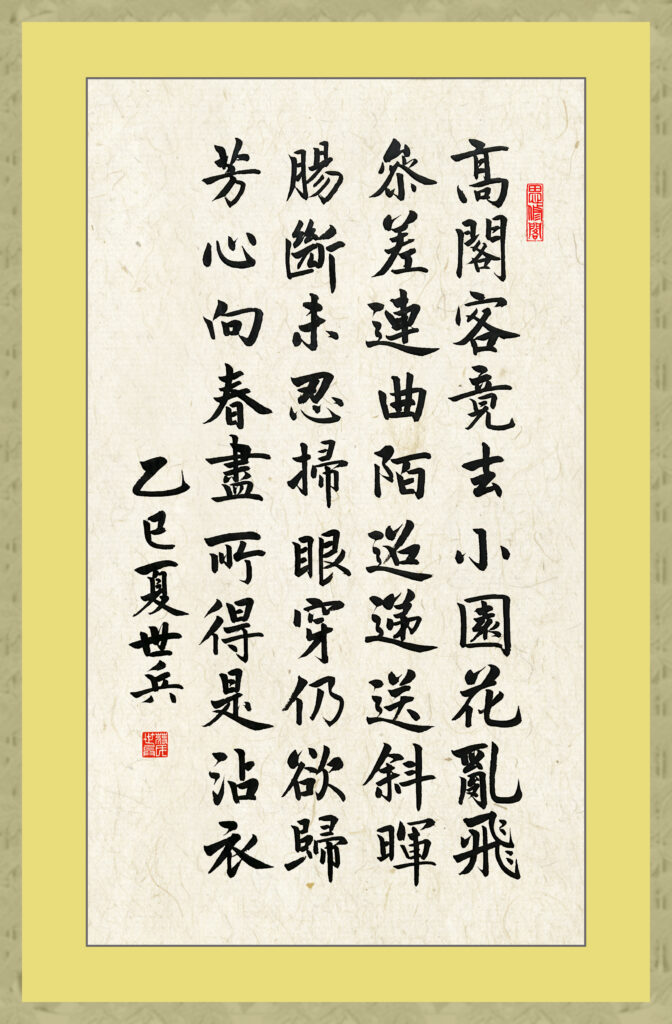 高閣客竟去小園花亂飛
參差連曲陌迢遞送斜暉
腸斷未忍掃眼穿仍欲歸
芳心向春盡所得是沾衣
乙巳夏世兵